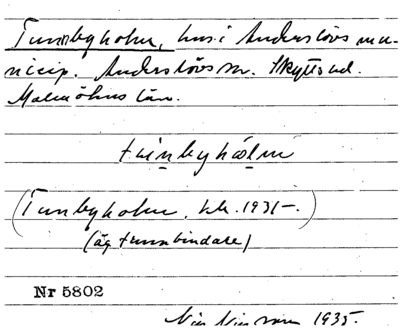 Tunnbyholm, hus i Anderslövs mu-
nicip. Anderslövs sn. Skytts hd.
Malmöhus län.
(Tunnbyholm, kb. 1931–.)
(äg tunnbindare)
Nr 5802
1935.